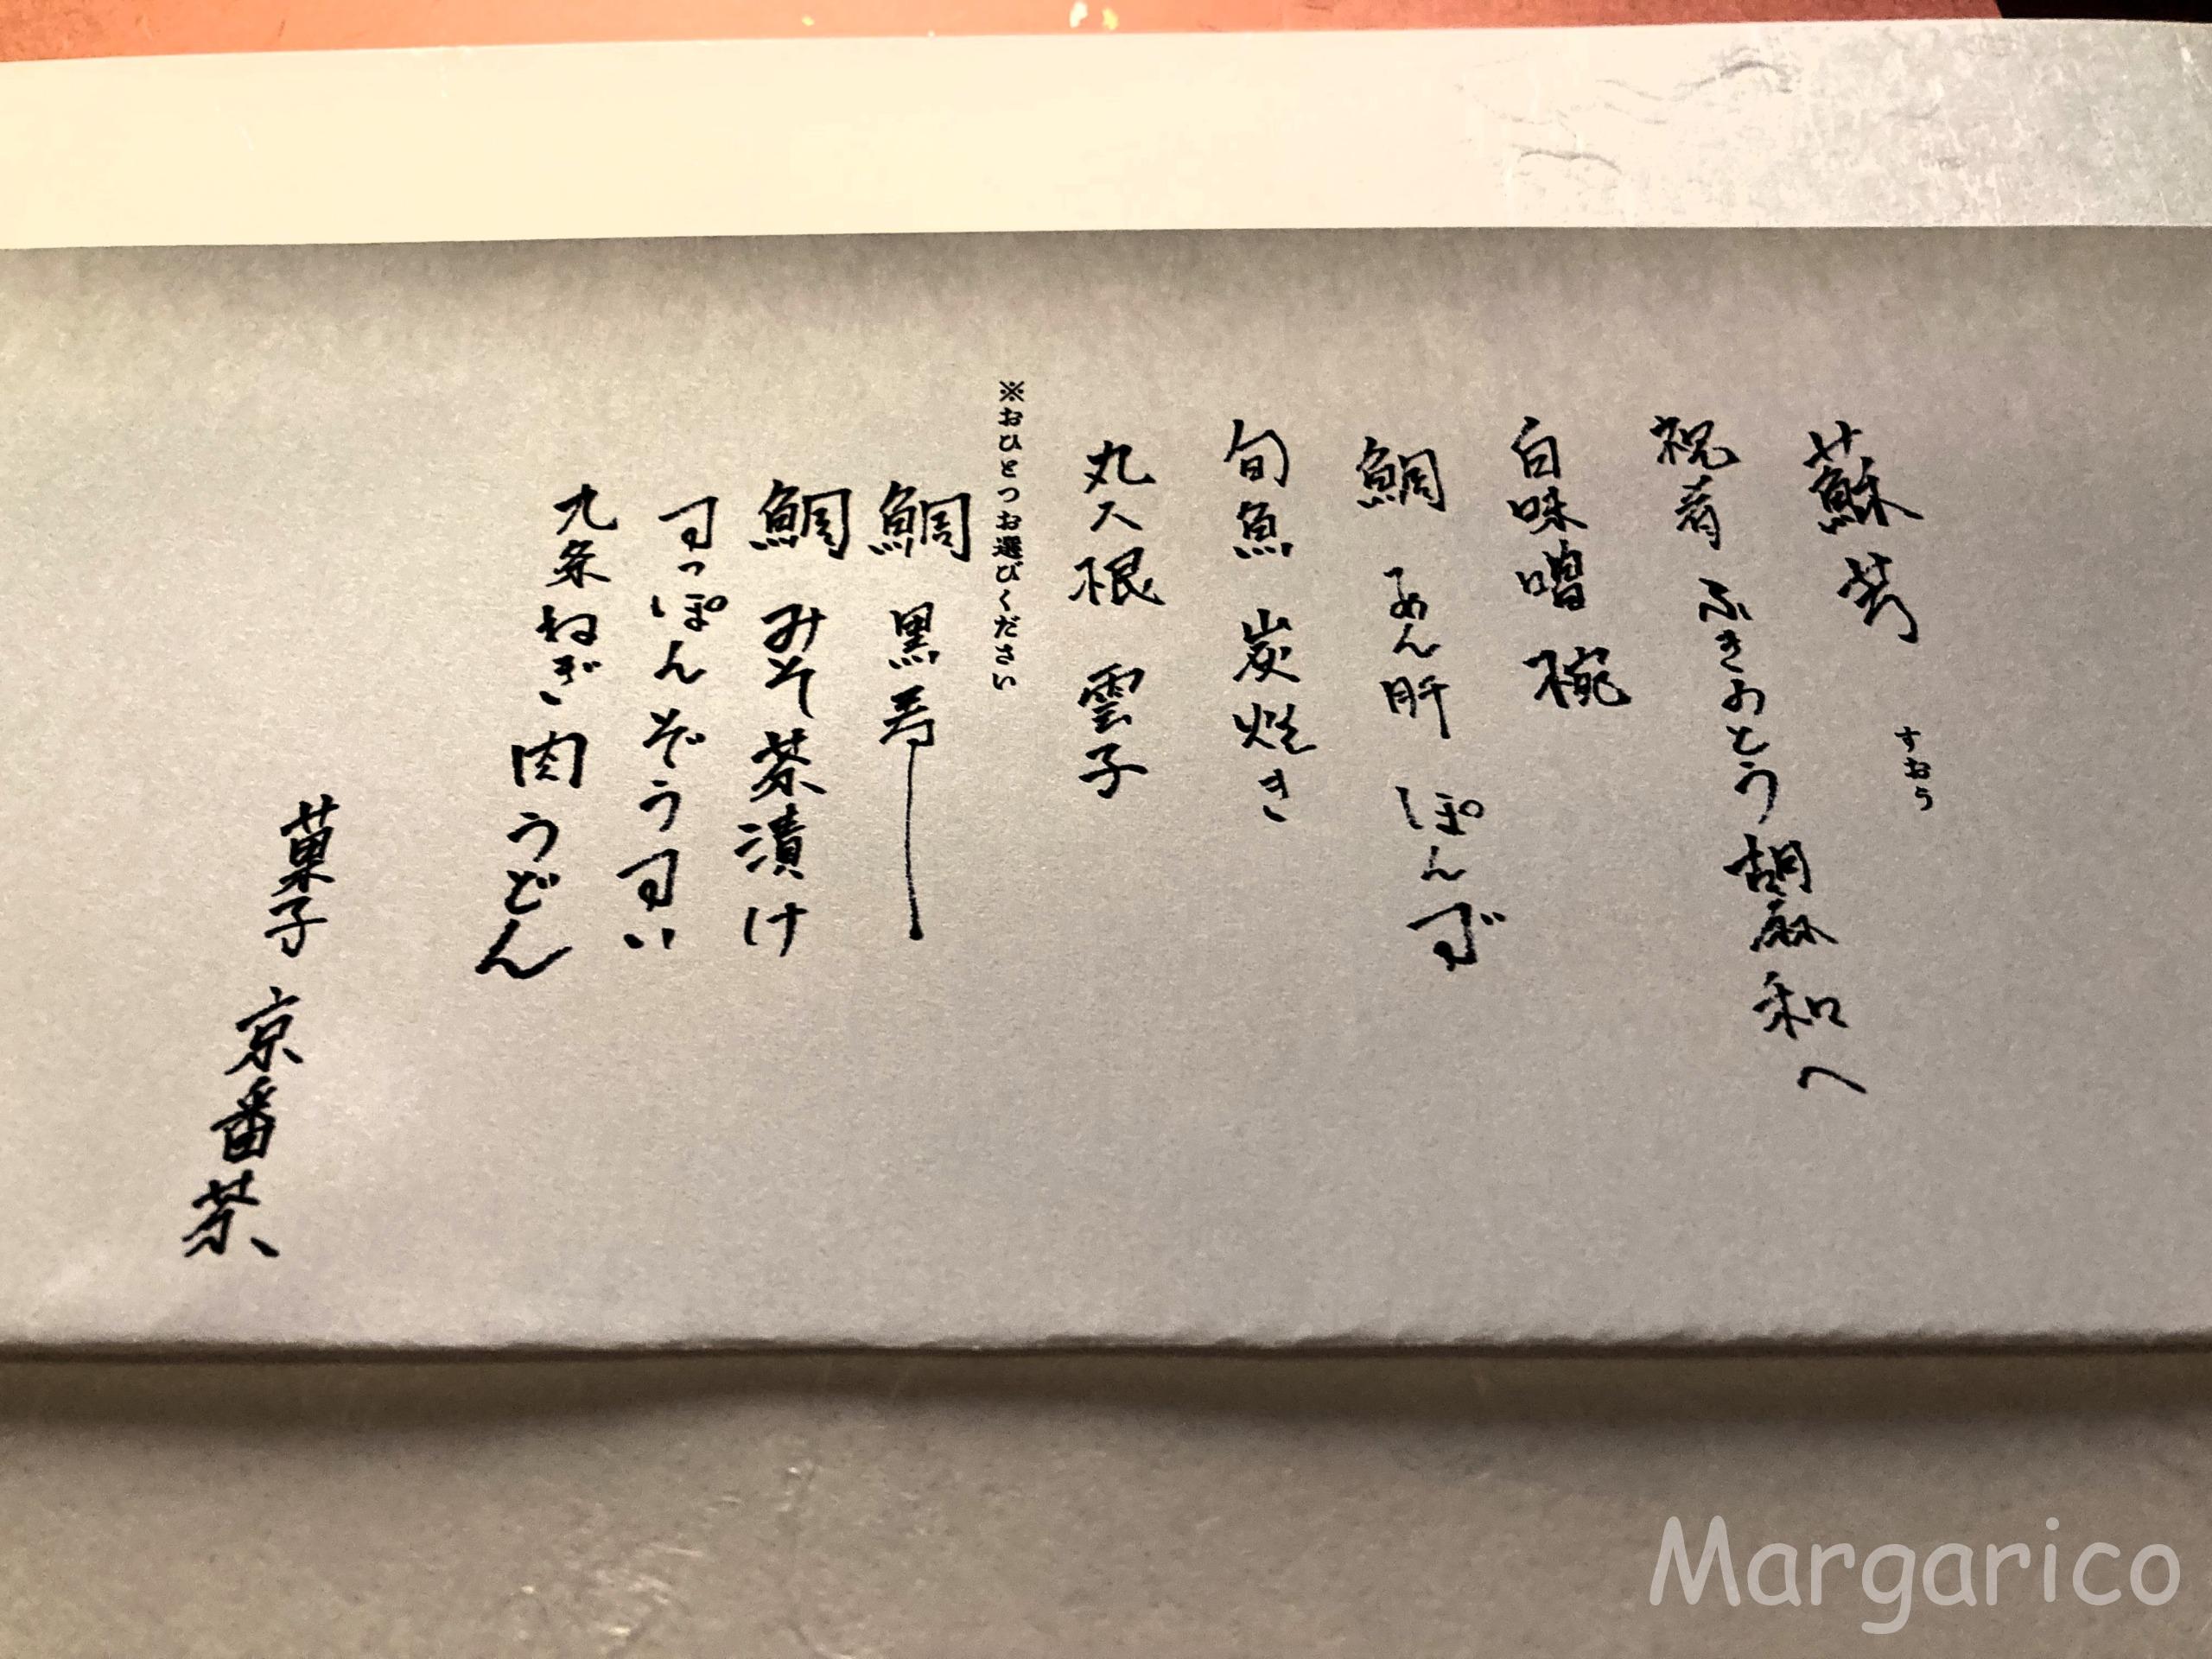 蘇芳 すおう
祝肴 ふきのとう 胡麻和へ
白味噌椀
鯛 あん肝 ぽんず
旬魚 炭焼き
丸大根 雲子
※おひとつお選びください
鯛 黒寿し
鯛 みそ茶漬け
すっぽんぞうすい
九条ねぎ肉うどん
菓子 京番茶
Margarico